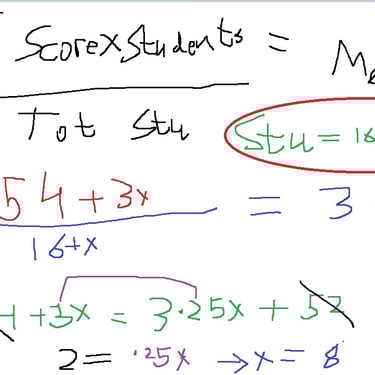 Scorexstudents =
Tot Stu
Stu = 16
54 + 3x = 3
16+x
+3x = 3.25x + 52
2 = .25x → x = 8